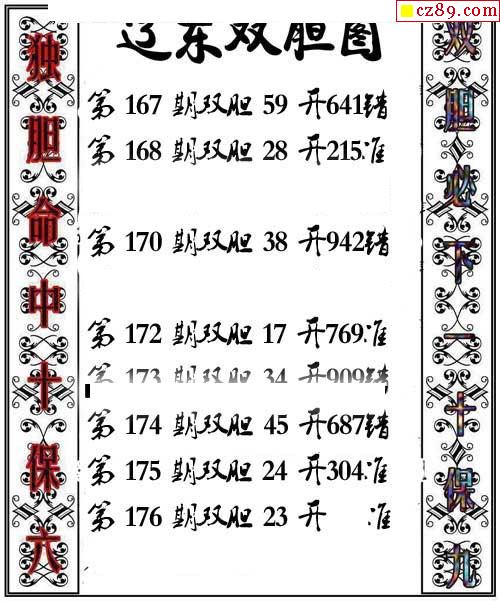 cz89.com
辽东双胆图
独胆命中十保六
第 167 期双胆 59 开641错
第 168 期双胆 28 开215准
第 170 期双胆 38 开942错
第 172 期双胆 17 开769准
第 173 期双胆 34 开909错
第 174 期双胆 45 开687错
第 175 期双胆 24 开304准
第 176 期双胆 23 开 准
双胆必下一十保九